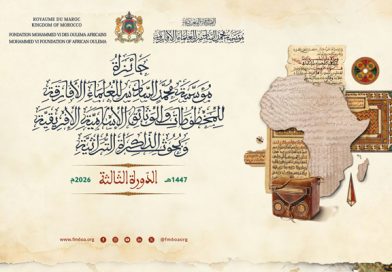 ROYAUME DU MAROC
KINGDOM OF MOROCCO
FONDATION MOHAMMED VI DES OULEMA AFRICAINS
MOHAMMED VI FOUNDATION OF AFRICAN OULEMA
المملكة المغربية
مؤسسة محمد السادس للعلماء الأفارقة
جائزة
مؤسسة محمد السادس للعلماء الأفارقة
للمخطوطات والوثائق الإسلامية الإفريقية
وبحوث الذاكرة التراثية
الدورة الثالثة
1447هـ
2026م
www.fmdoa.org
@fmdoaorg